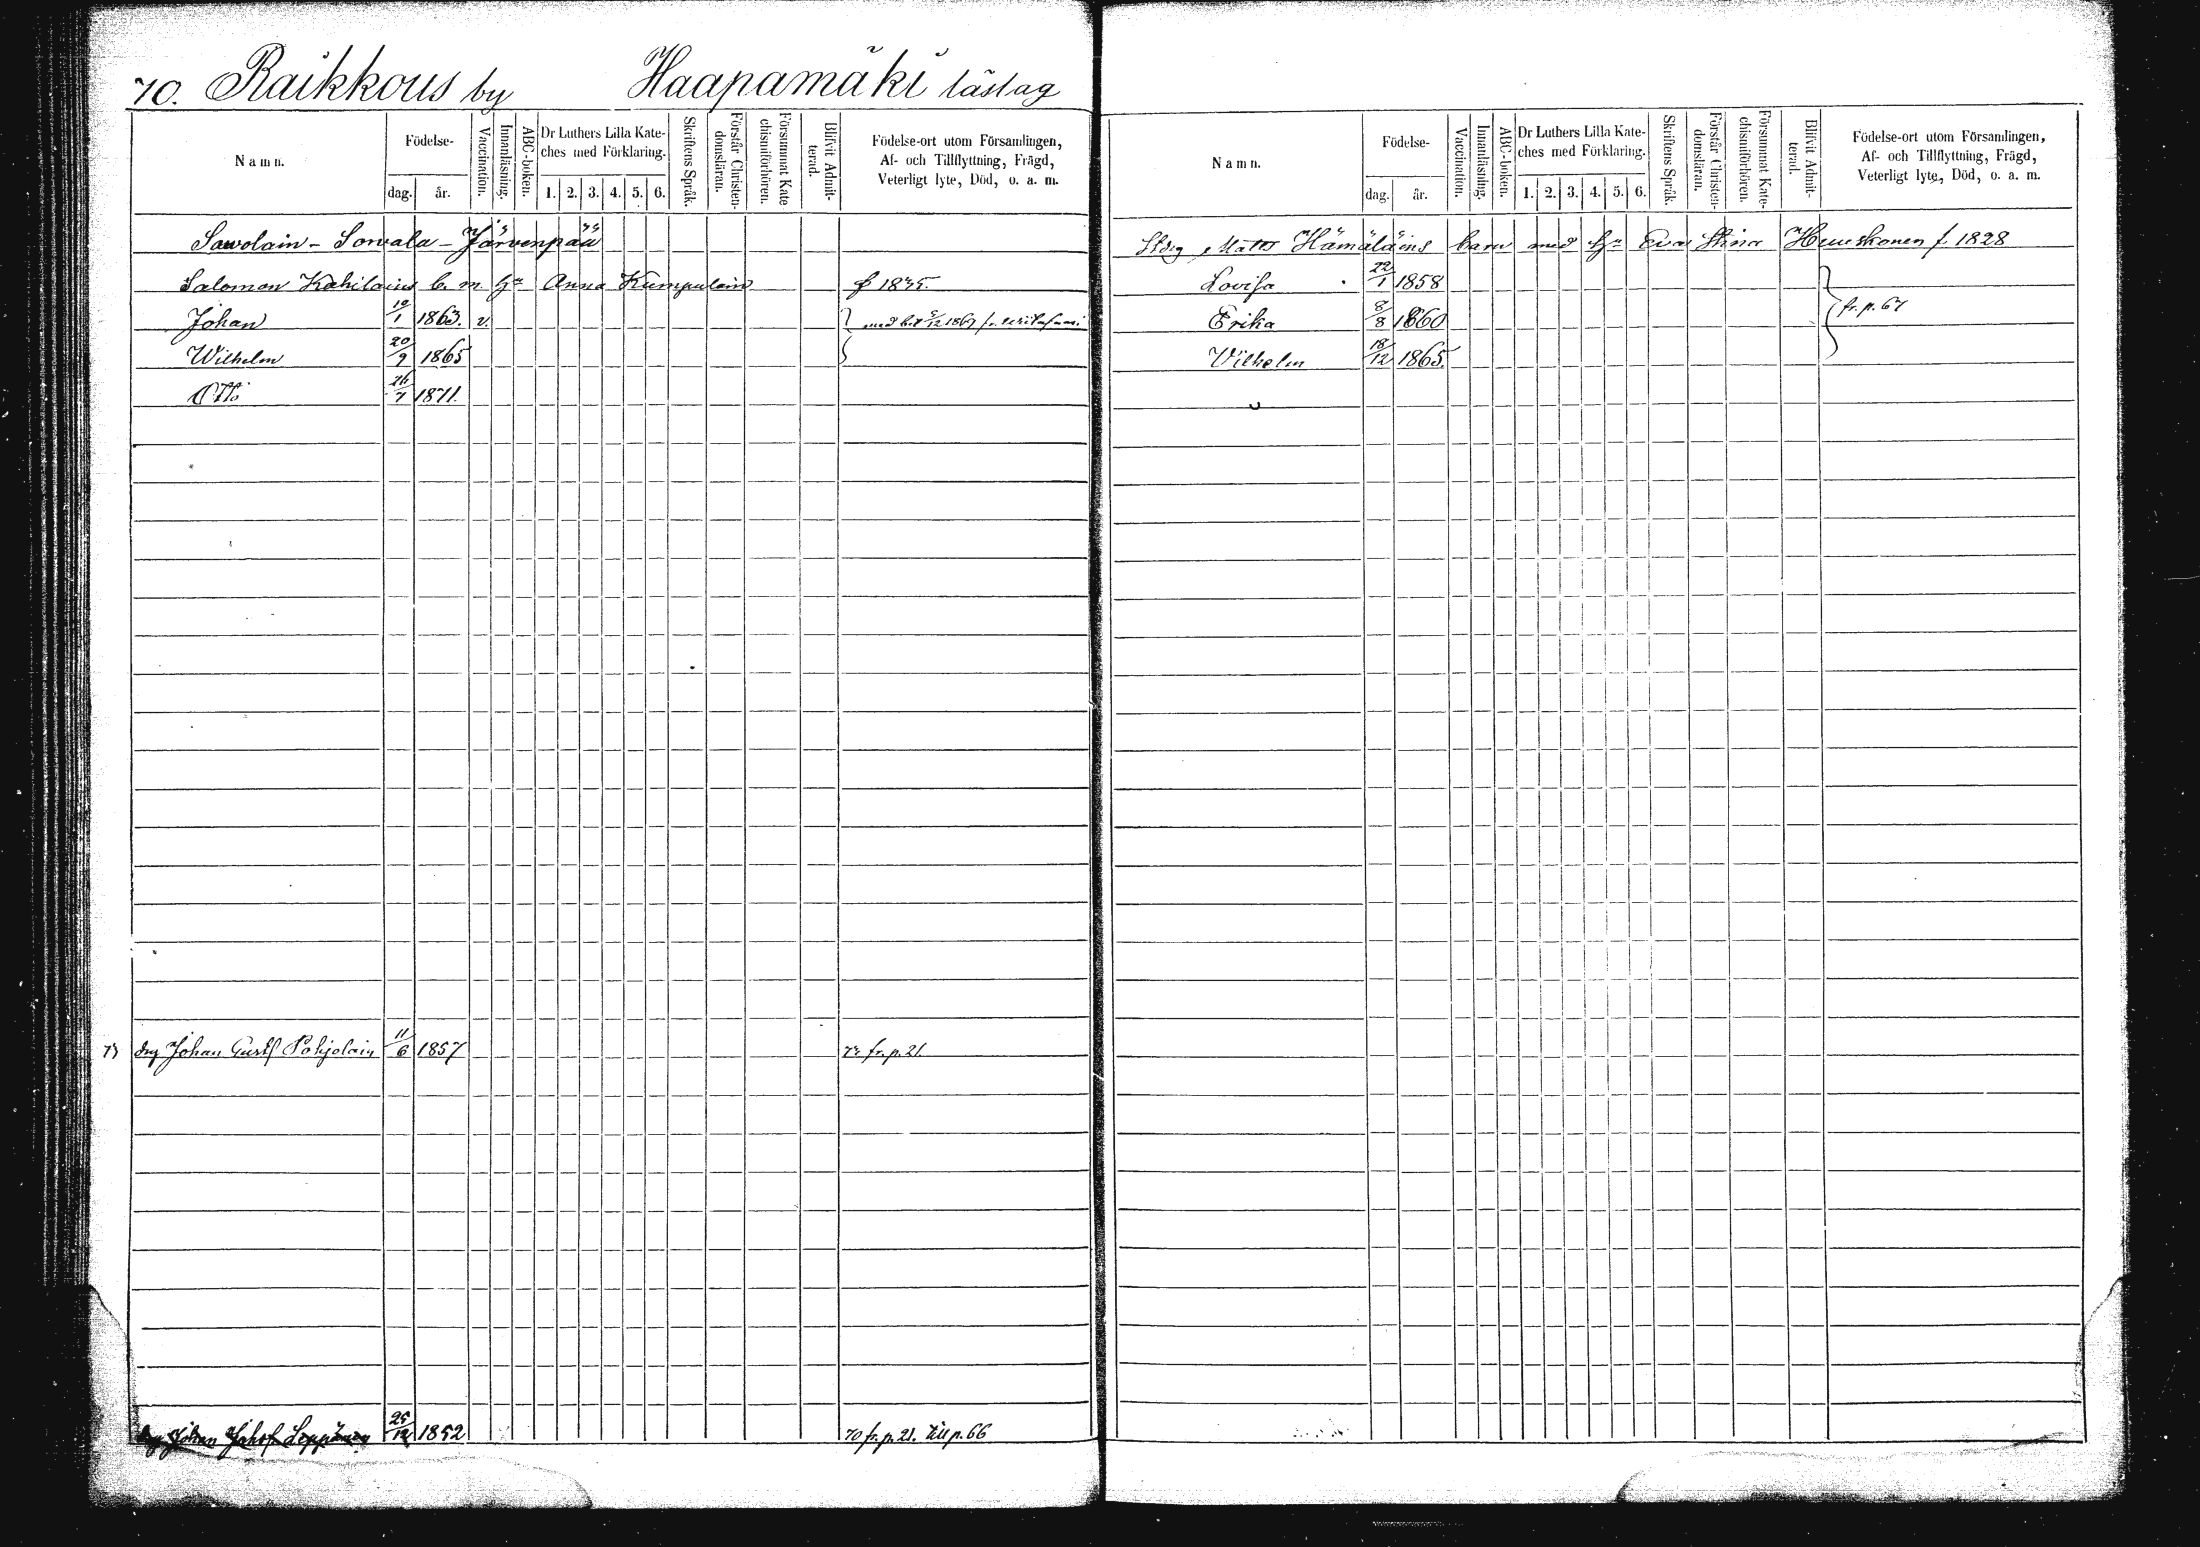 70. Raikkous by Haapamäki läslag
Namn. Födelse- dag. år. Vaccination. Innanläsning. ABC-boken. Dr Luthers Lilla Kateches med Förklaring. 1. 2. 3. 4. 5. 6. Skriftens Språk. Förstår Christendomsläran. Försummat Katechismiförhören. Blifvit Admitterad. Födelse-ort utom Församlingen, Af- och Tillflyttning, Frägd, Veterligt lyte, Död, o. a. m.
Sawolain - Sorvala - Järvenpää
Salomon Kahilains b. m. Hu Anna Kumpulain f 1835.
Johan 19/1 1863. v.
Wilhelm 20/9 1865
Otto 26/7 1871.
73 drg Johan Gustf Pohjolain 11/6 1857 73 fr. p. 21.
drg Johan Johsf. Leppänen 25/12 1852 70 fr. p. 21. Till p. 66
Namn. Födelse- dag. år. Vaccination. Innanläsning. ABC-boken. Dr Luthers Lilla Kateches med Förklaring. 1. 2. 3. 4. 5. 6. Skriftens Språk. Förstår Christendomsläran. Försummat Katechismiförhören. Blifvit Admitterad. Födelse-ort utom Församlingen, Af- och Tillflyttning, Frägd, Veterligt lyte, Död, o. a. m.
Matts Hämäläins barn med Hu Eva Stina f. 1828
Lovisa 22/1 1858
Erika 8/8 1860 fr. p. 67
Vilhelm 18/12 1865.